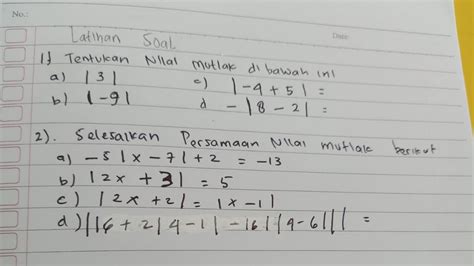 No.:
Date:
Latihan Soal
1) Tentukan Nilai mutlak dibawah ini
a) |3| c) |-4 + 5| =
b) |-9| d -|8 - 2| =
2). Selesaikan Persamaan Nilai mutlak berikut
a) -5|x - 7| + 2 = -13
b) |2x + 3| = 5
c) |2x + 2| = |x - 1|
d) ||6 + 2|4 - 1| - 16||9 - 6||| =